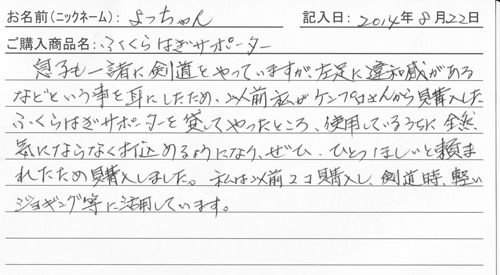 お名前(ニックネーム): よっちゃん 記入日: 2014年8月22日
ご購入商品名: ふくらはぎサポーター
息子も一諸に剣道をやっていますが、左足に違和感がある
などという事を耳にしたため、以前私がケンプロさんから購入した
ふくらはぎサポーターを貸してやったところ、使用しているうちに全然
気にならなく打込めるようになり、ぜひ、ひとつほしいと頼ま
れたため購入しました。私は以前2コ購入し、剣道時、軽い
ジョギング等に活用しています。